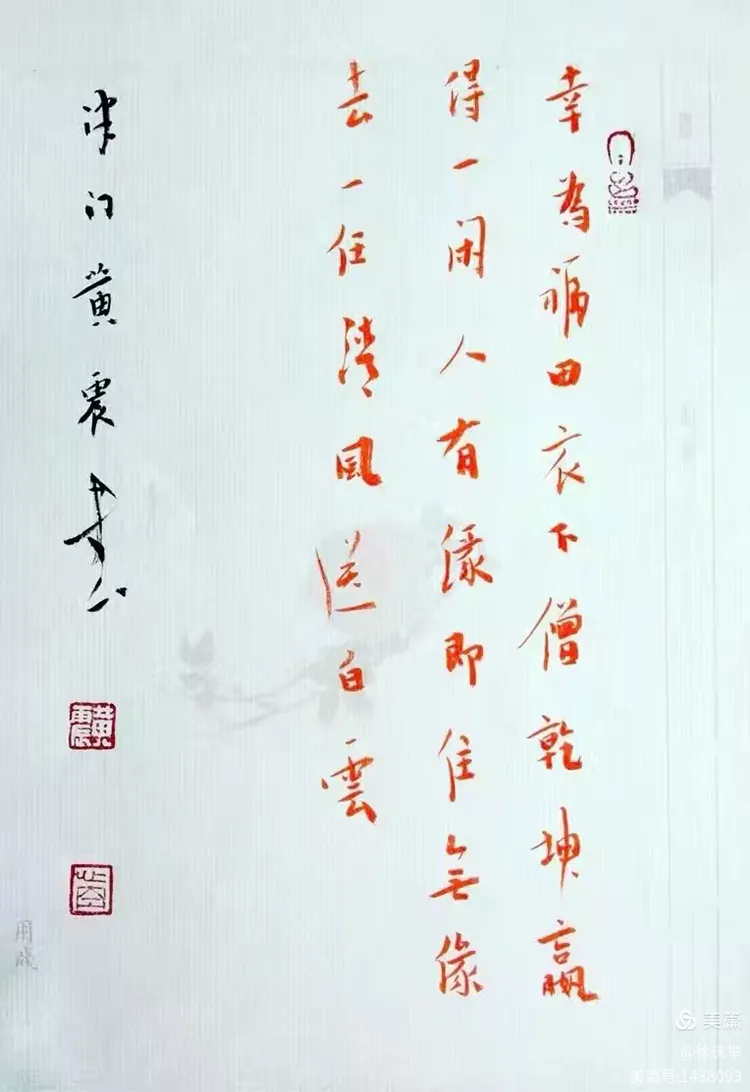 幸為福田衣下僧乾坤贏
得一闲人有緣即住無緣
去一任清風送白雲
津门黄震书
黄震
美篇
美篇号:1438093